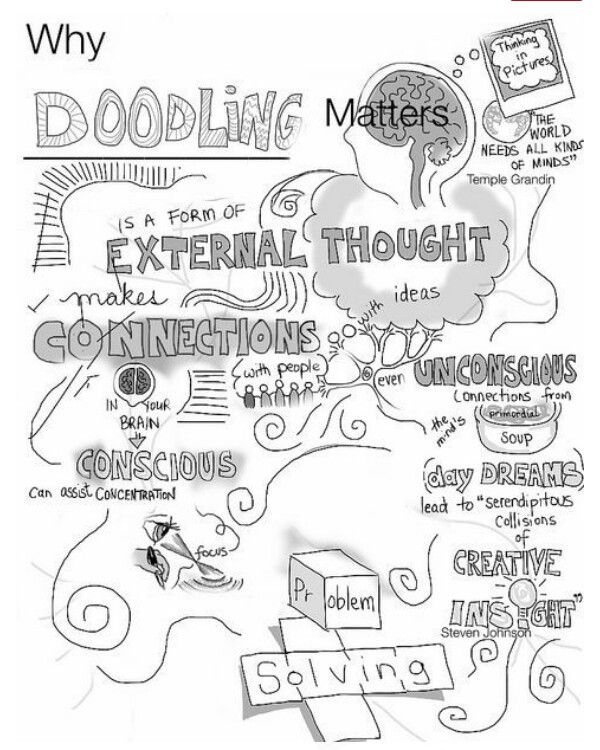 Why
DOODLING Matters
Thinking
in
Pictures
"THE
WORLD
NEEDS ALL KINDS
OF MINDS"
Temple Grandin
IS A FORM OF
EXTERNAL THOUGHT
ideas
makes
with
CONNECTIONS
with people
even
UNCONSCIOUS
Connections from
the
mind's
primordial
SOUP
IN YOUR
BRAIN
CONSCIOUS
Can assist CONCENTRATION
focus
day DREAMS
lead to "serendipitous
Collisions
of
CREATIVE
INSIGHT"
Steven Johnson
Pr oblem
Solving